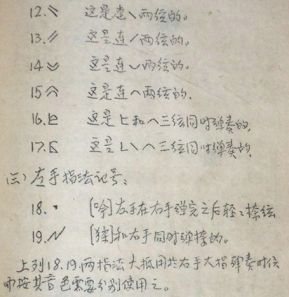 12. 〃 这是连丶两弦的。
13. 〃 这是连丿两弦的。
14. 这是连⌣两弦的。
15. 这是连⌒两弦的.
16. 这是匕和ヘ三弦同时弹奏的,
17. 这是L\ヘ三弦同时弹奏的。
(三) 左手指法记号:
18. 、 [吟]左手在右手弹完之后轻轻揉弦
19. N [猱]和右手同时弹揉的。
上列18.19.两指法大抵用于右手大指弹奏时候
而按其音色需要分别使用之。